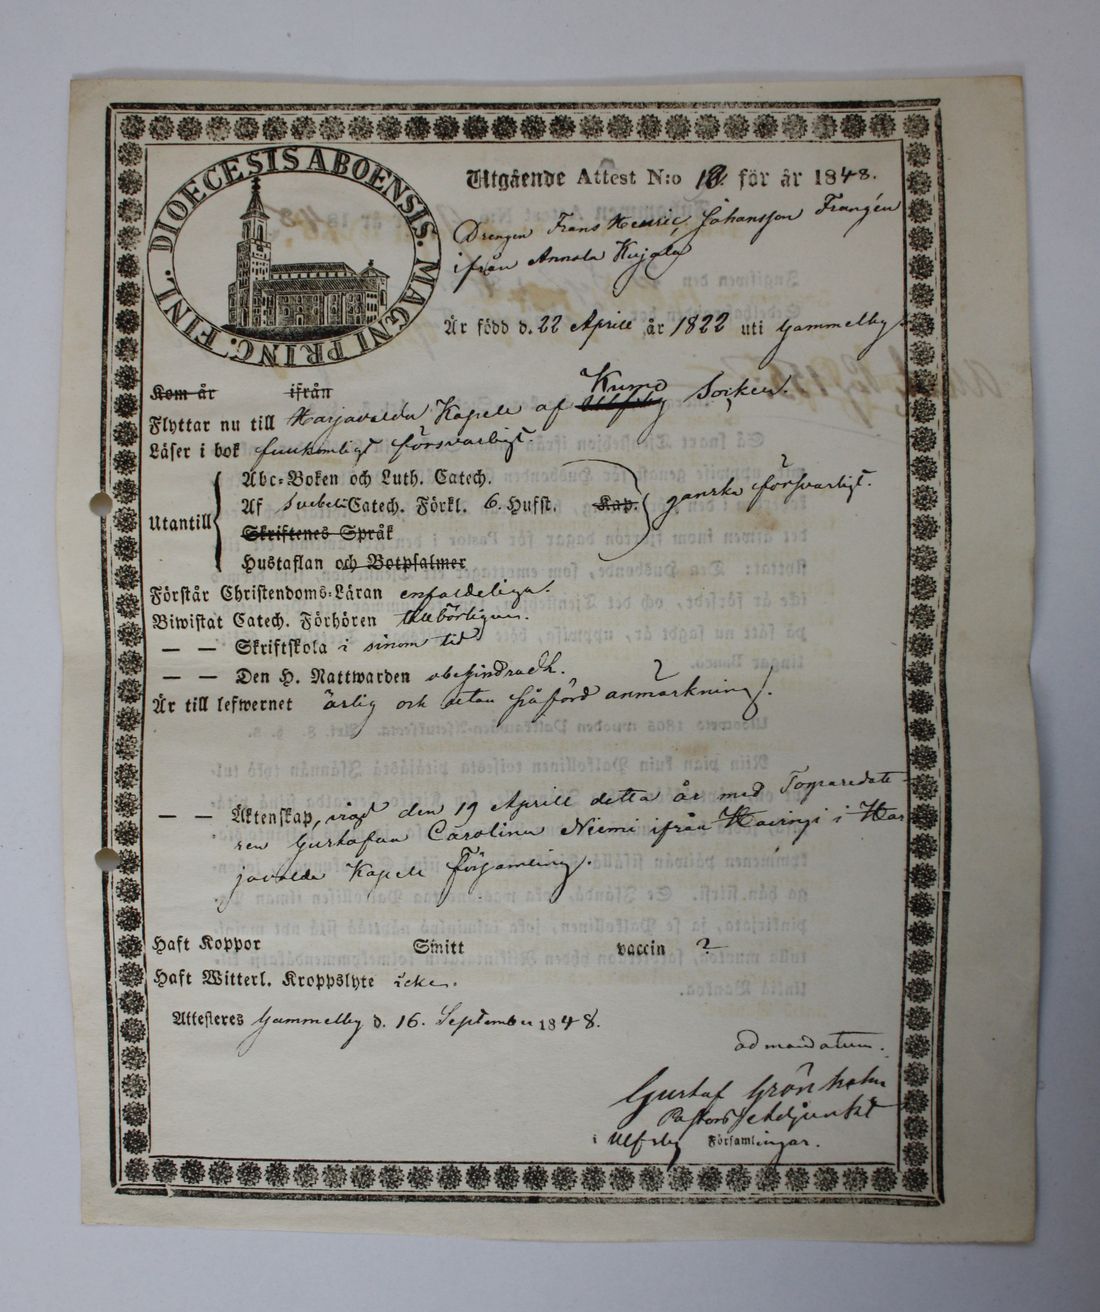 DIOECESIS ABOENSIS. MAGNI PRINC. FINL.
Utgående Attest N:o 12. för år 1848.
Drengen Frans Henric Johansson Frangén
ifrån Annola Kujala
Är född d. 22 Aprill år 1822 uti Gammelby
Kom år ifrån
Kumo
Flyttar nu till Harjavalda Kapell af Ulfsby Socken.
Läser i bok fullkomligt försvarligt.
Abc-Boken och Luth. Catech.
Utantill Af Svebeli Catech. Förkl. 6. Hufst. Kap. ganska försvarligt.
Skriftenes Språk
Hustaflan och Botpsalmer
Förstår Christendoms-Läran enfaldeliga.
Biwistat Catech. Förhören tillbörligen.
— — Skriftskola i sinom tid
— — Den H. Nattwarden obehindradt.
Är till lefwernet ärlig och utan påförd anmärkning.
— — Äktenskap, vigd den 19 Aprill detta år med Torparedotte-
ren Gustafva Carolina Niemi ifrån Havingi i Har
javalda Kapell Församling.
Haft Koppor Smitt vaccin ?
Haft Witterl. Kroppslyte icke.
Attesteres Gammelby d. 16. September 1848.
ad mandatum.
Gustaf Grönholm
Pastors Adjunkt
i Ulfsby Församlingar.